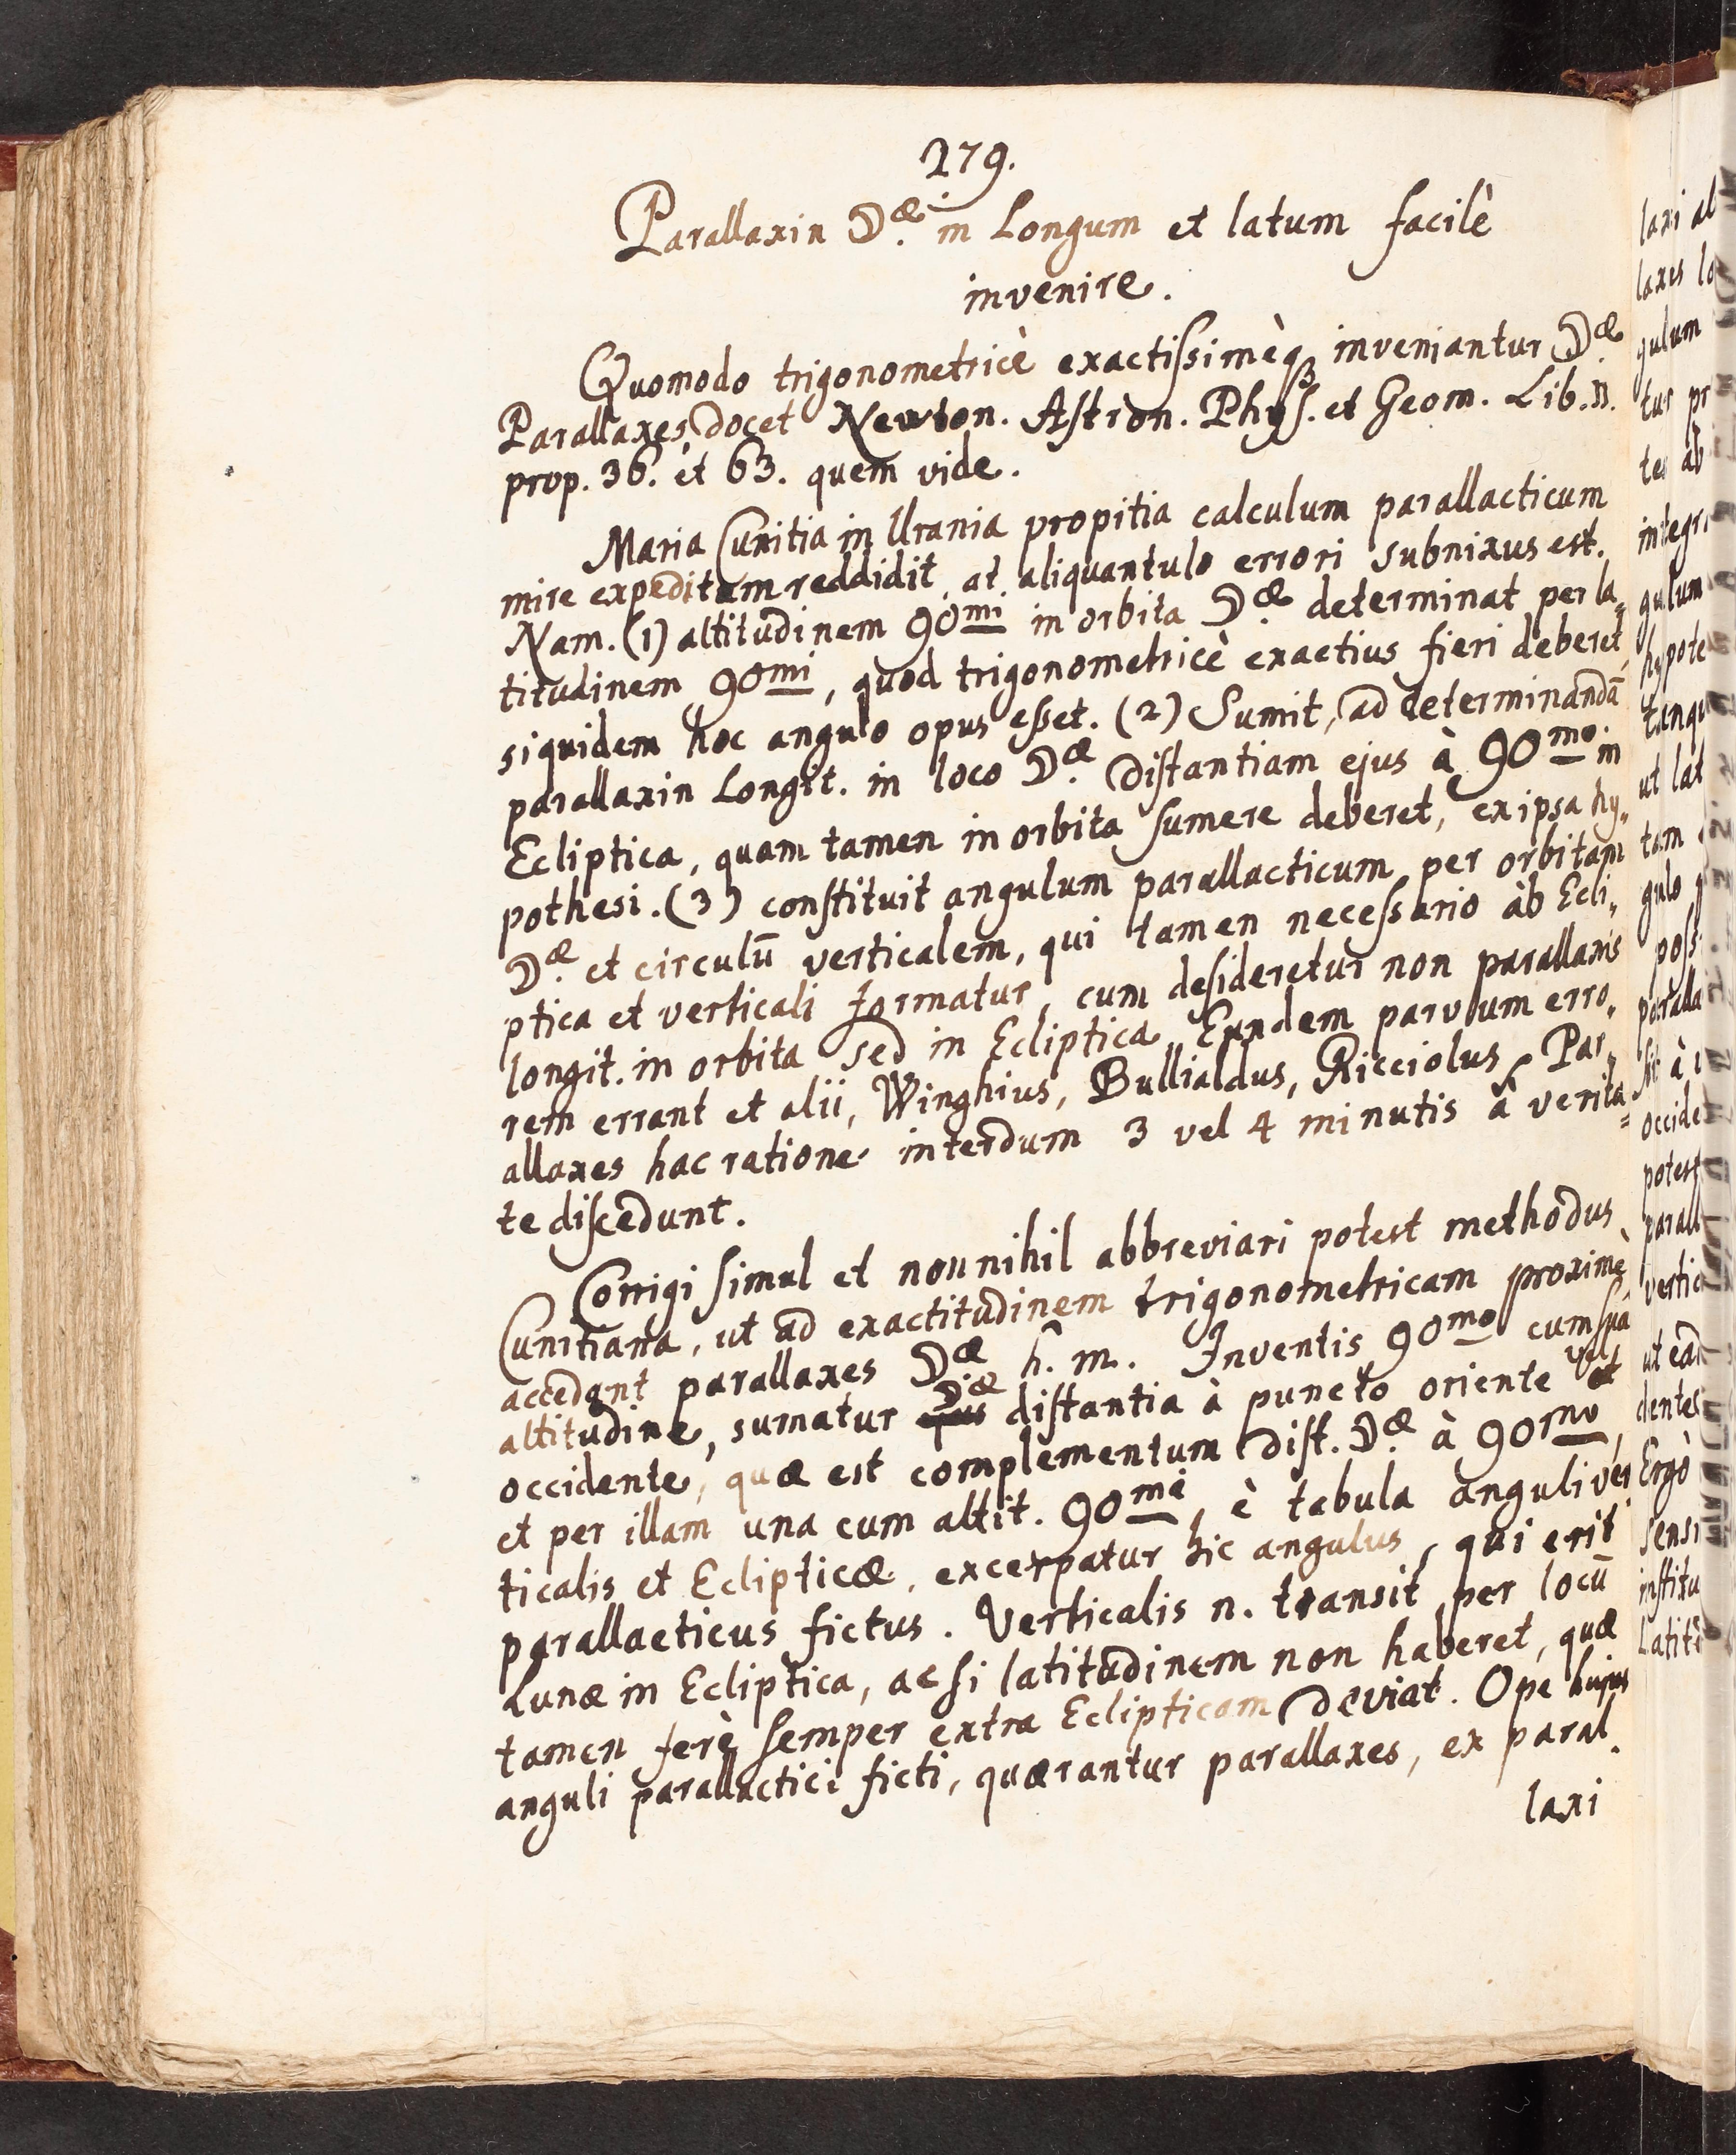 279.
Parallaxin ☽æ. in Longum et latum facilè
invenire.
Quomodo trigonometricè exactiſsimèq; inveniantur ☽æ.
Parallaxes, docet Newton. Aſtron. Phyſ. et Geom. Lib. n.
prop. 36. et 63. quem vide.
Maria Cunitia in Urania propitia calculum parallacticum
mire expeditum reddidit, at aliquantulo errori subnixus est.
Nam. (1) altitudinem 90mi in orbita ☽æ. determinat per la„
titudinem 90mi, quod trigonometricè exactius fieri deberet,
siquidem hoc angulo opus eſset. (2) Sumit, ad determinandā
parallaxin Longit. in loco ☽æ. diſtantiam ejus à 90mo. in
Ecliptica, quam tamen in orbita sumere deberet, ex ipsa hy„
pothesi. (3) conſtituit angulum parallacticum per orbitam
☽æ. et circulū verticalem, qui tamen neceſsario àb Ecli„
ptica et verticali formatur, cum deſideretur non parallaxis
longit. in orbita sed in Ecliptica. Eundem parvum erro„
rem errant et alii, Winghius, Bullialdus, Ricciolus, Par„
allaxes hac ratione interdum 3 vel 4 minutis à verita„
te diſcedunt.
Corrigi ſimul et nonnihil abbreviari potest methodus
Cunitiana, ut ad exactitudinem trigonometricam proximè
accedant parallaxes ☽æ h. m. Inventis 90mo cum ſua
altitudine, sumatur ejus ☽æ diſtantia à puncto oriente et vel
occidente, quæ est complementum diſt. ☽æ. à 90mo,
et per illam una cum altit. 90mi, è tabula anguli ver
ticalis et Eclipticæ, excerpatur hic angulus, qui erit
parallacticus fictus. Verticalis n. transit per locū
Lunæ in Ecliptica, ac ſi latitudinem non haberet, quæ
tamen ferè ſemper extra Eclipticam deviat. Ope hujus
anguli parallactici ficti, quærantur parallaxes, ex paral„
laxi